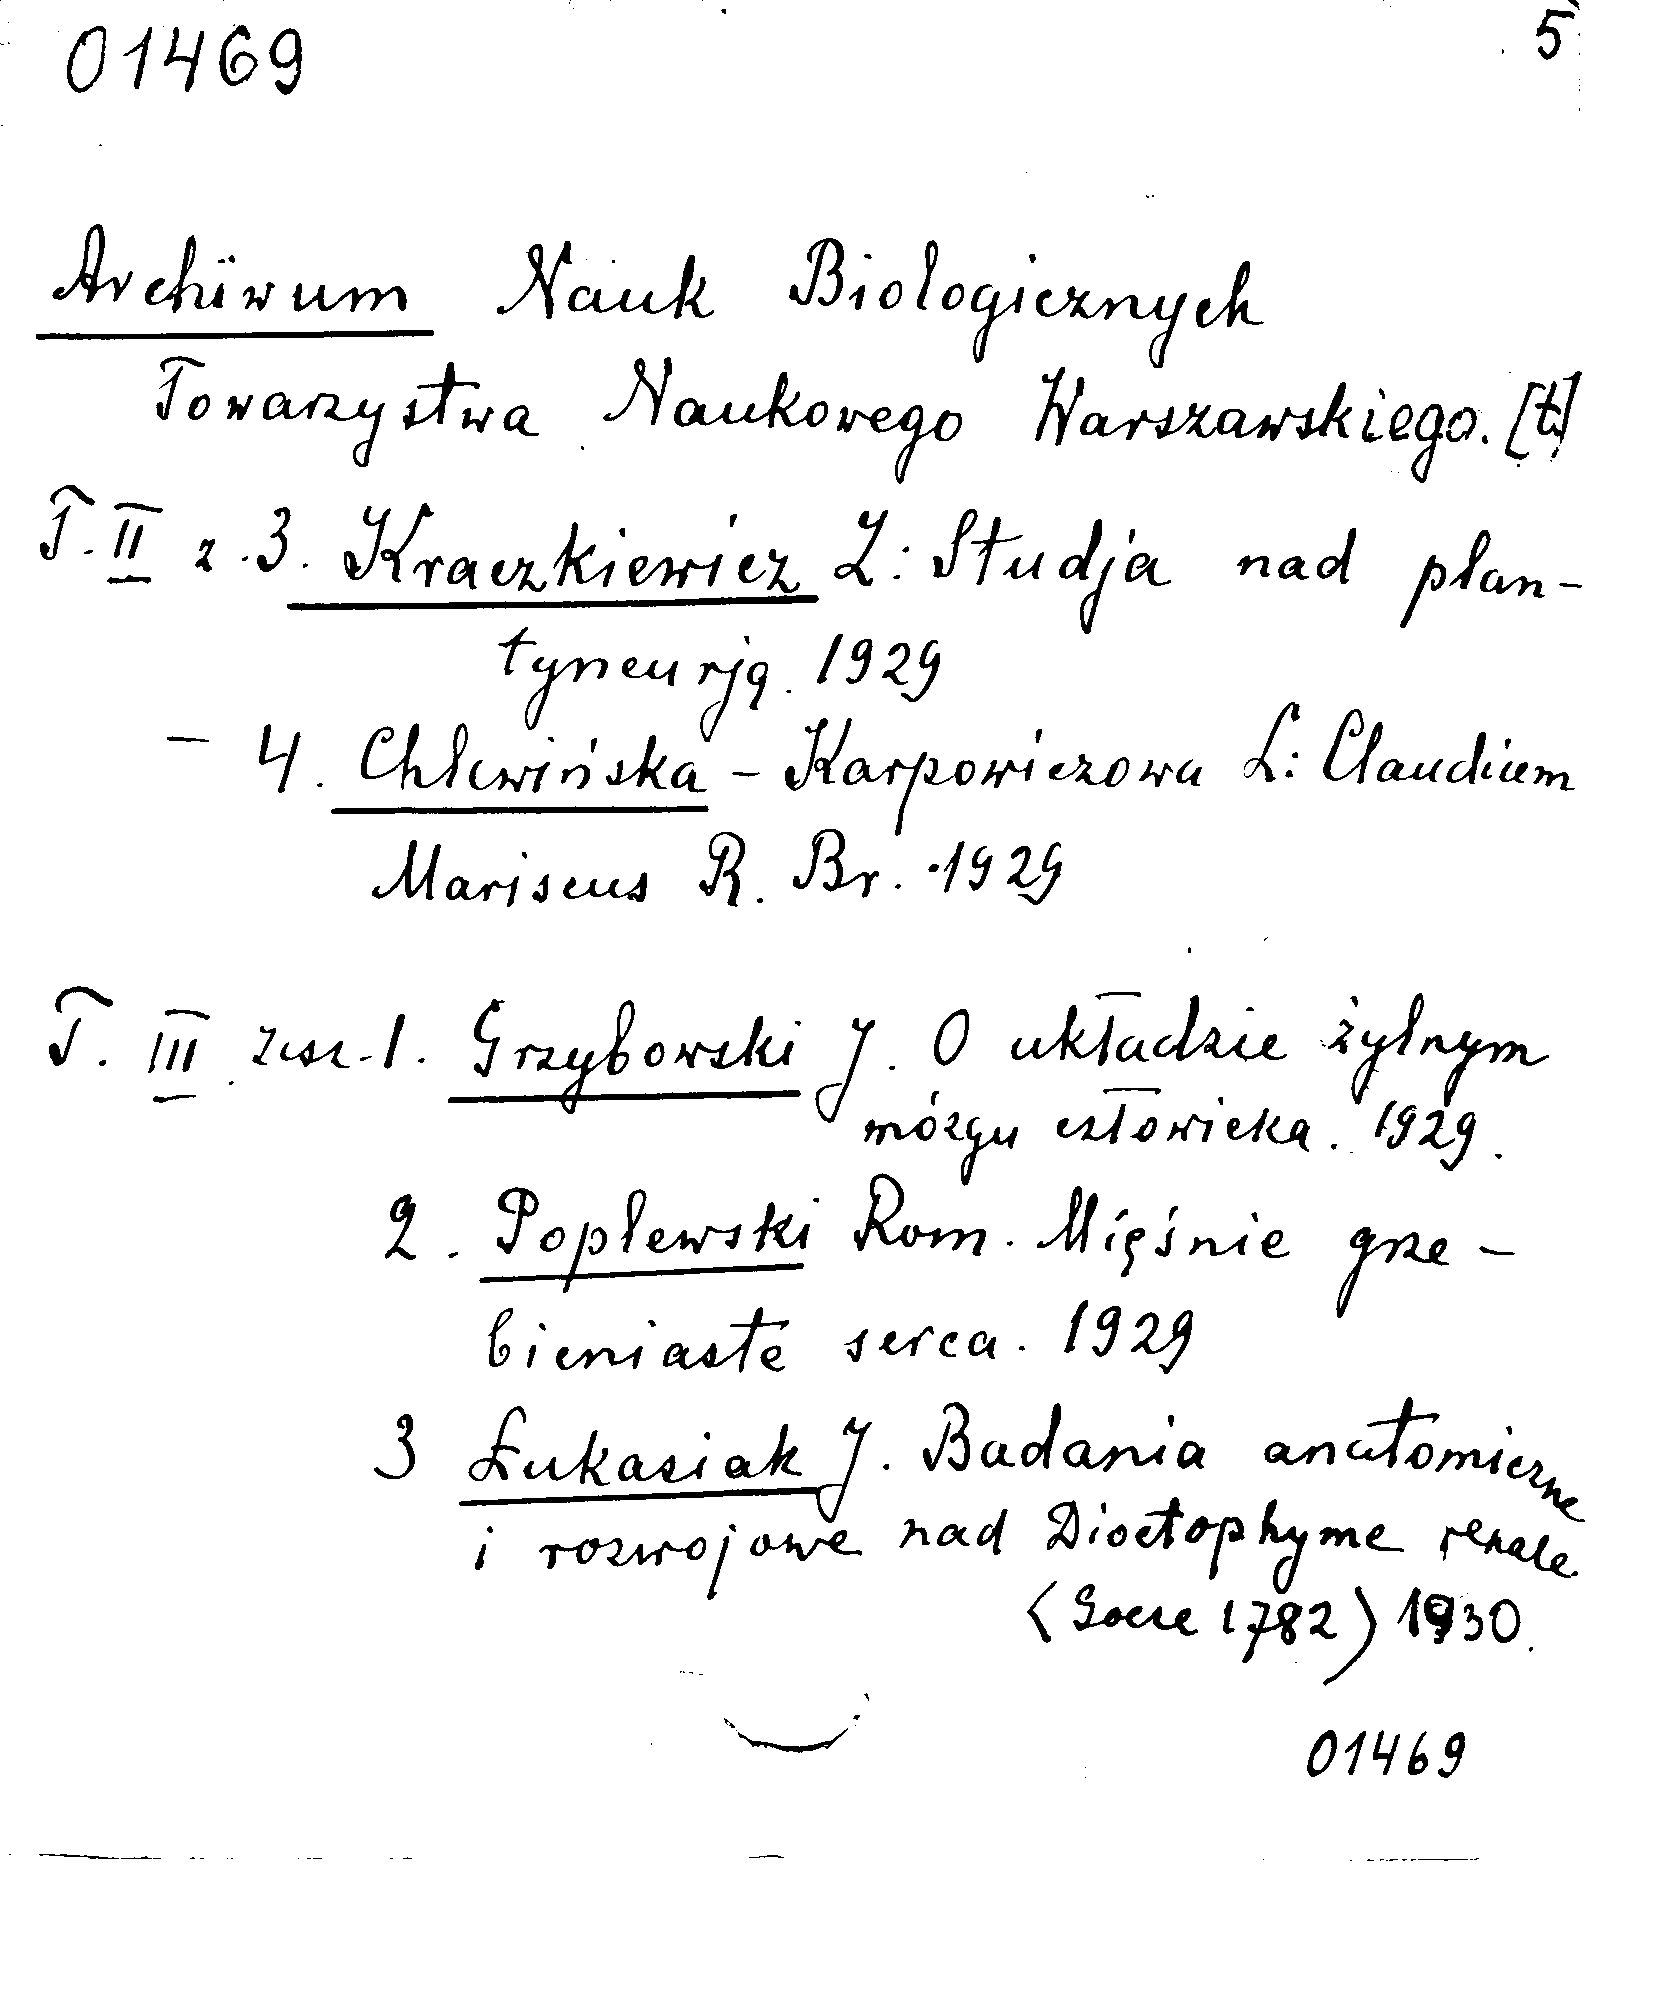 01469
5
Archiwum Nauk Biologicznych
Towarzystwa Naukowego Warszawskiego. [t]
T. II z. 3. Kraczkiewicz Z: Studja nad plan-
tyneurją. 1929
– 4. Chlewińska – Karpowiczowa L: Claudium
Mariscus R. Br. 1929
T. III zesz. 1. Grzybowski J. O układzie żylnym
mózgu człowieka. 1929.
2. Poplewski Rom. Mięśnie grze-
bieniaste serca. 1929
3 Łukasiak J. Badania anatomiczne
i rozwojowe nad Dioctophyme renale
(Goeze 1782) 1930.
01469